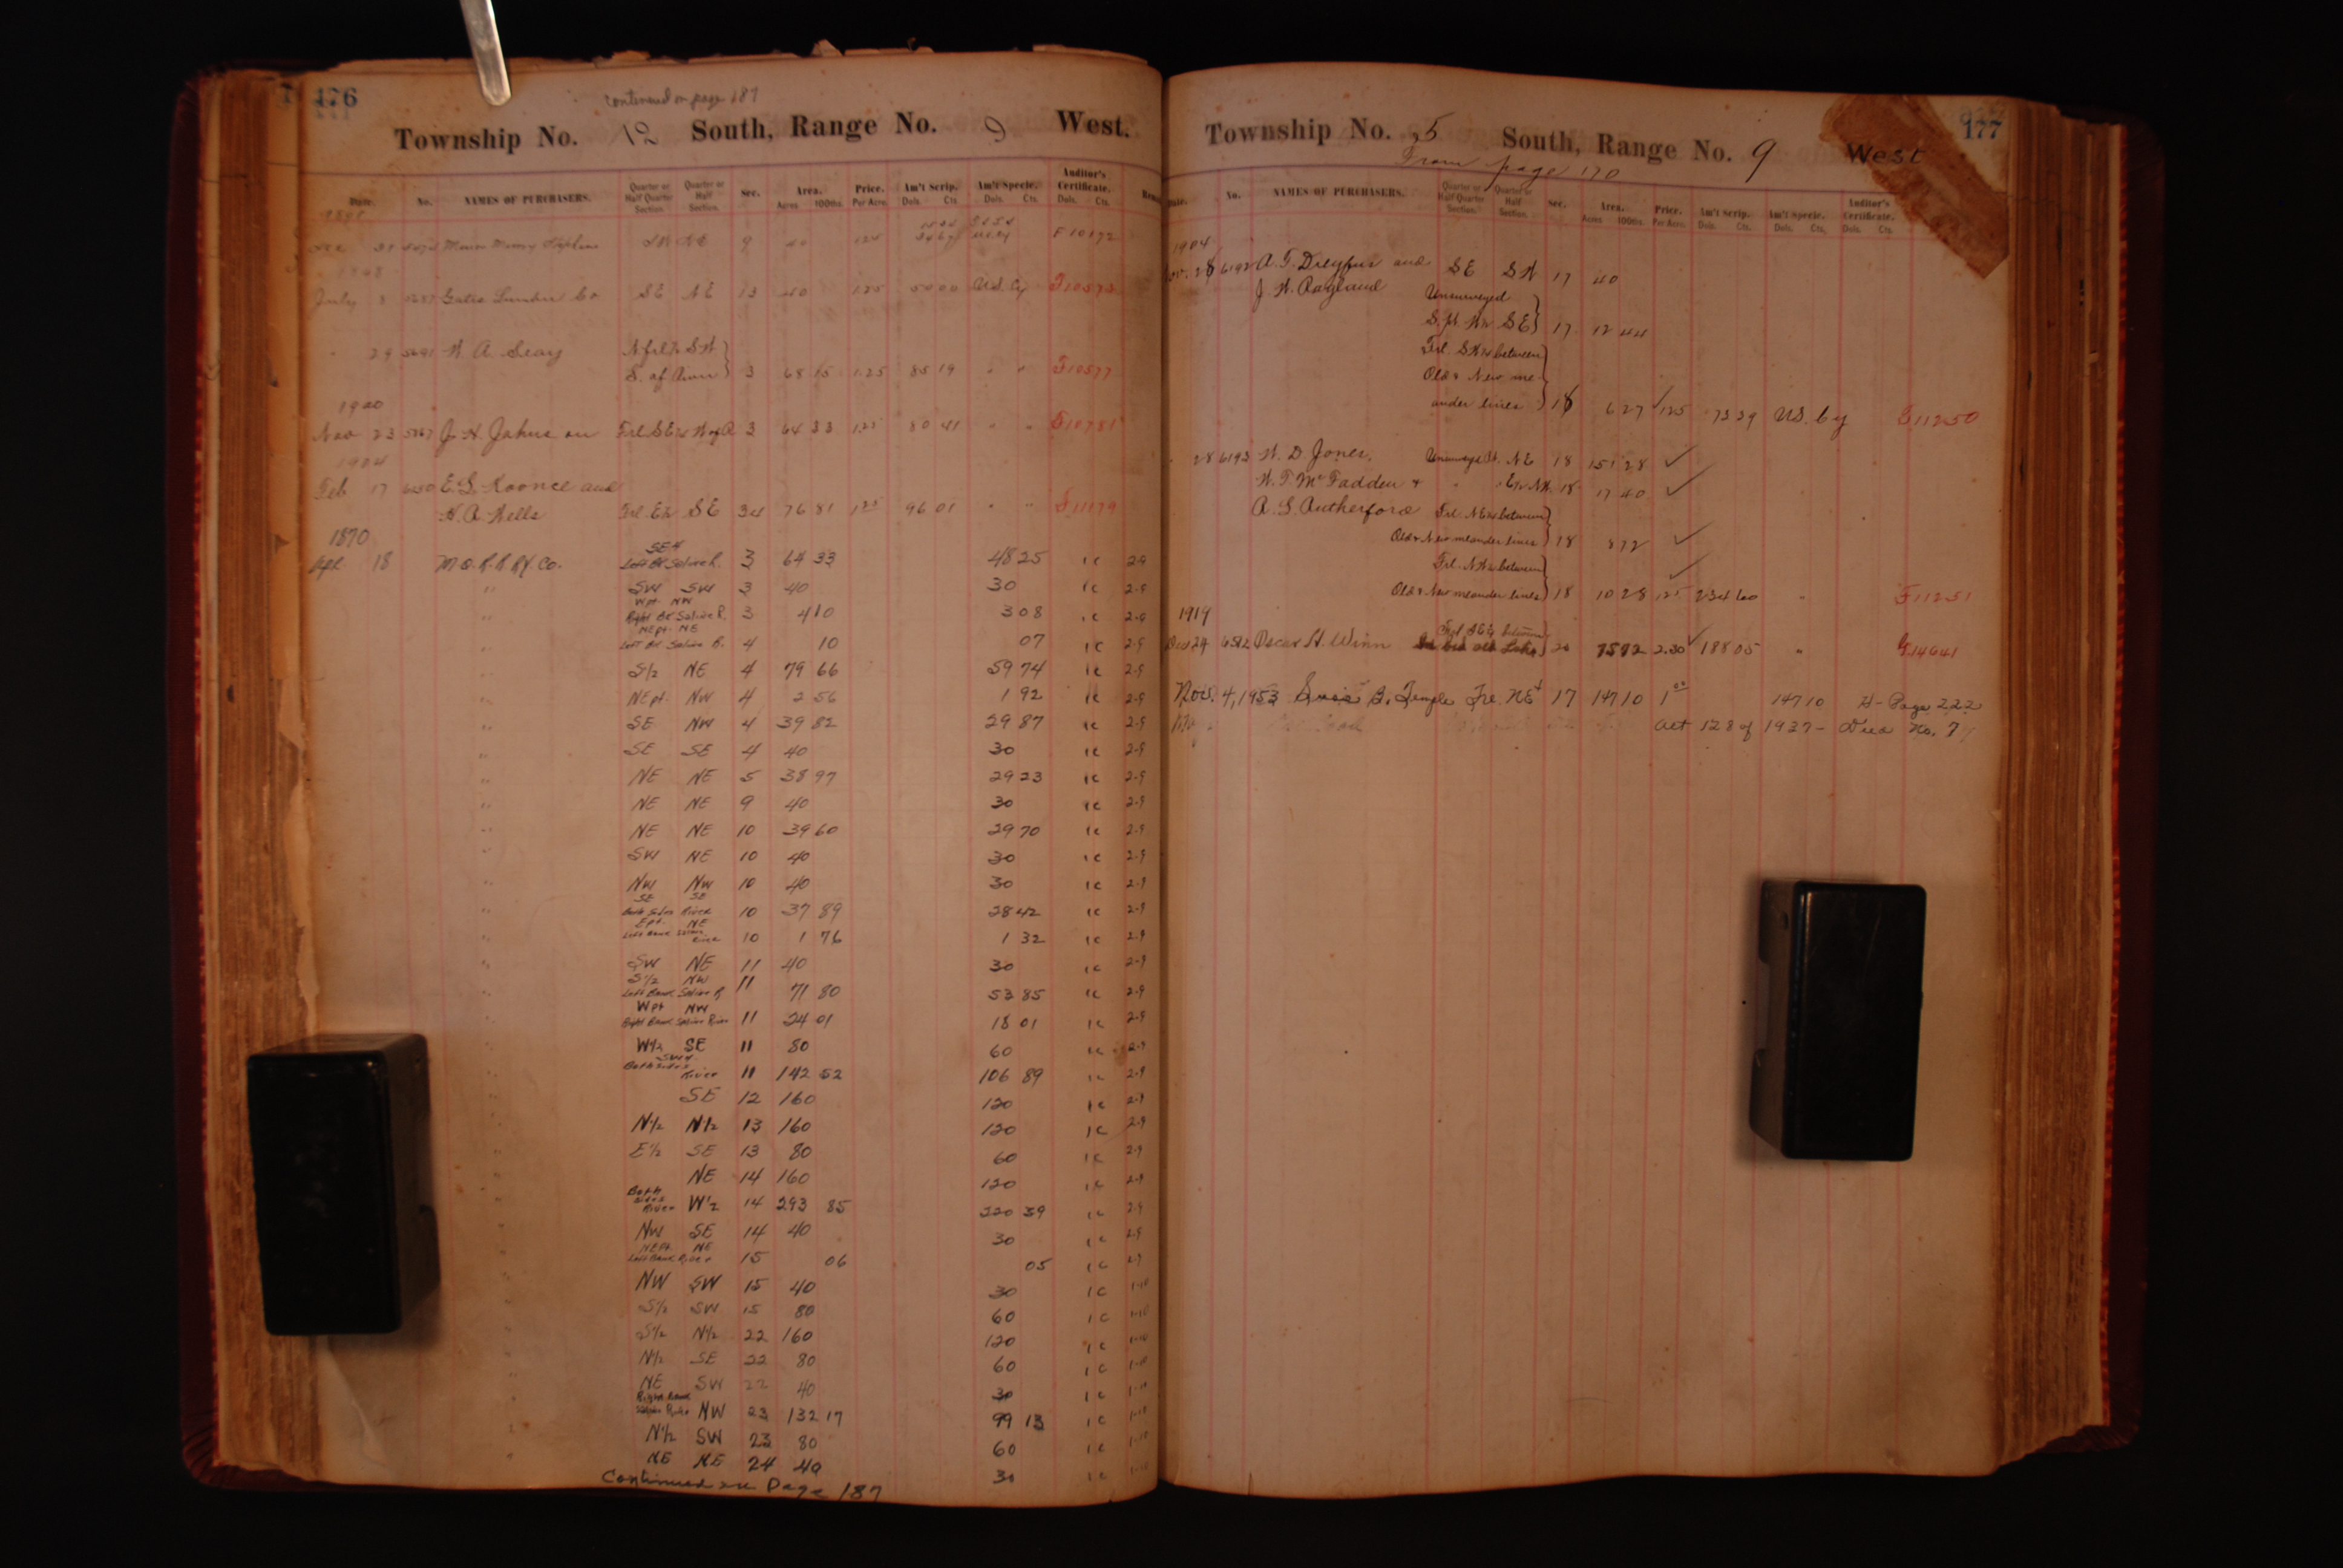 176
continued on page 187
Township No. 12 South, Range No. 9 West.
Date. No. NAMES OF PURCHASERS. Quarter or Half Quarter Section. Quarter or Half Section. Sec. Area. Acres 100ths. Price. Per Acre. Am't Scrip. Dols. Cts. Am't Specie. Dols. Cts. Auditor's Certificate. Dols. Cts.
SW NE 9 40 1.25 F10192
July Gates Lumber Co SE NE 13 40 1.25 50 00 U.S. Cy F10575
" 29 5691 W. A. Seay N frl ½ SW
S. of River 3 68 15 1.25 85 19 " " F10577
1900
Nov 23 J. H. Johnson Frl SE¼ 3 64 33 1.25 80 41 " " F10781
1904
Feb 17 6150 E. L. Koonce and
H. A. Wells Frl. E½ SE 34 76 81 1.25 96 01 " " F11179
1870
Apl. 18 M. O. & R. R. Ry. Co. SE4
Left Bk Saline R. 3 64 33 48 25 1c 2-9
" SW SW 3 40 30 1c 2-9
" Wpt. NW
Right Bk Saline R. 3 4 10 3 08 1c 2-9
" NEpt. NE
Left Bk. Saline R. 4 10 07 1c 2-9
" S½ NE 4 79 66 59 74 1c 2-9
" NEpt. NW 4 2 56 1 92 1c 2-9
" SE NW 4 39 82 29 87 1c 2-9
" SE SE 4 40 30 1c 2-9
" NE NE 5 38 97 29 23 1c 2-9
" NE NE 9 40 30 1c 2-9
" NE NE 10 39 60 29 70 1c 2-9
" SW NE 10 40 30 1c 2-9
" NW NW 10 40 30 1c 2-9
" SE SE
Both Sides River 10 37 89 28 42 1c 2-9
" Ept. NE
Left Bank Saline River 10 1 76 1 32 1c 2-9
" SW NE 11 40 30 1c 2-9
" S½ NW
Left Bank Saline R 11 71 80 53 85 1c 2-9
" Wpt NW
Right Bank Saline River 11 24 01 18 01 1c 2-9
" W½ SE 11 80 60 1c 2-9
" SW4
Both sides River 11 142 52 106 89 1c 2-9
" SE 12 160 120 1c 2-9
" N½ N½ 13 160 120 1c 2-9
" E½ SE 13 80 60 1c 2-9
" NE 14 160 120 1c 2-9
" Both sides River W½ 14 293 85 220 39 1c 2-9
" NW SE 14 40 30 1c 2-9
" NEpt. NE
Left Bank River 15 06 05 1c 2-9
" NW SW 15 40 30 1c 1-10
" S½ SW 15 80 60 1c 1-10
" S½ N½ 22 160 120 1c 1-10
" N½ SE 22 80 60 1c 1-10
" NE SW 22 40 30 1c 1-10
" Right Bank
Saline River NW 23 132 17 99 13 1c 1-10
" N½ SW 23 80 60 1c 1-10
" NE NE 24 40 30 1c 1-10
Continued on Page 187
177
Township No. 5 South, Range No. 9 West
From page 170
Date. No. NAMES OF PURCHASERS. Quarter or Half Quarter Section. Quarter or Half Section. Sec. Area. Acres 100ths. Price. Per Acre. Am't Scrip. Dols. Cts. Am't Specie. Dols. Cts. Auditor's Certificate. Dols. Cts.
1904
Nov. 28 6192 A. T. Dreyfus and SE SW 17 40
J. W. Ragland Unsurveyed
SE 17 12 44
Frl. SW¼ between
Old & New me-
ander lines 18 6 27 ✓ 1.25 73 39 U.S. Cy G11250
" 28 6193 W. D. Jones, Unsurveyed NE 18 151 28 ✓
W. T. McFadden & " E½ NW. 18 17 40 ✓
A. L. Rutherford Frl. NE¼ between
Old & New meander lines 18 8 72 ✓
Frl. NW¼ between ✓
Old & New meander lines 18 10 28 1.25 234 60 " F11251
1919
Dec 24 6512 Oscar H. Winn Frl SE¼ between
20 75 72 2.50 ✓ 188 05 " G14641
Nov. 4, 1953 B. Temple Frl. NE4 17 147 10 1.00 147 10 H-Page 222
Act 128 of 1937 - Deed No. 7